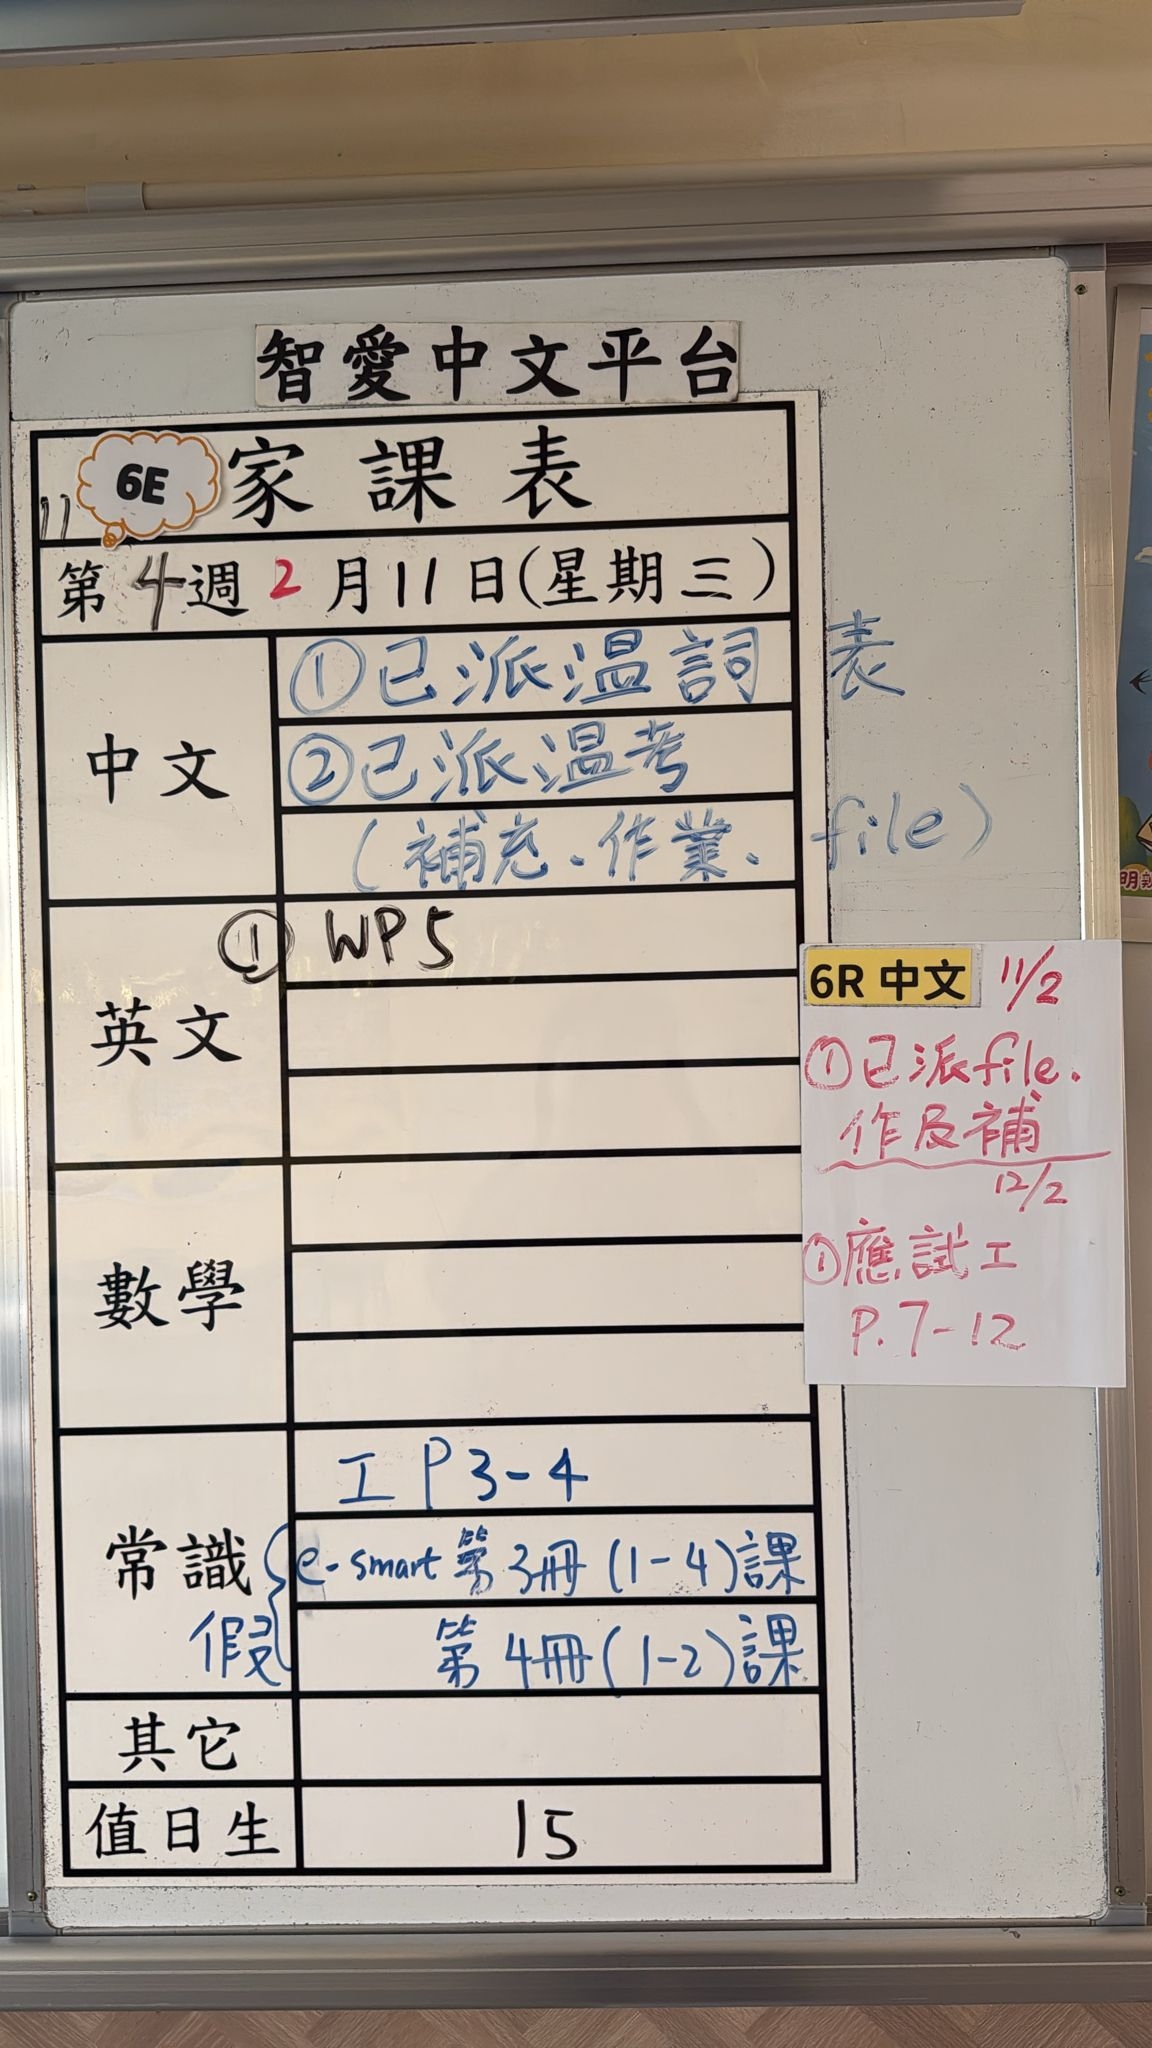 智愛中文平台
6E 家課表
第4週2月11日(星期三)
中文
①已派温詞表
②已派温考
(補充、作業、file)
英文
① WP5
數學
常識
工 P3-4
假
e-smart 第3冊(1-4)課
第4冊(1-2)課
其它
值日生
15
6R 中文 11/2
①已派file.
作及補
12/2
①應試工
P.7-12